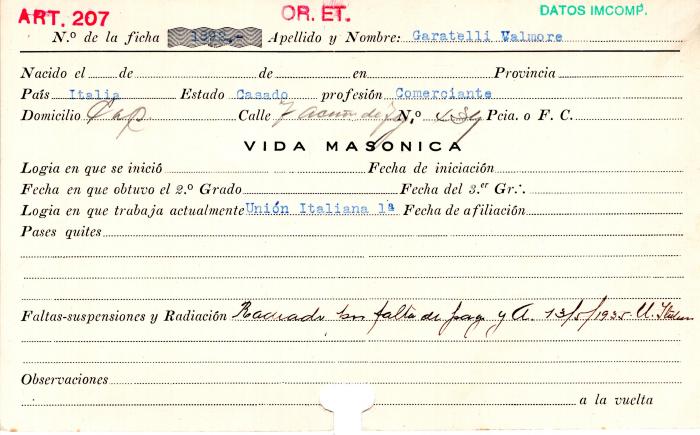 ART. 207 OR. ET. DATOS IMCOMP.
N.º de la ficha Apellido y Nombre: Garatelli Valmore
Nacido el de de en Provincia
País Italia Estado Casado profesión Comerciante
Domicilio Cap Calle N.º Pcia. o F. C.
VIDA MASONICA
Logia en que se inició Fecha de iniciación
Fecha en que obtuvo el 2.º Grado Fecha del 3.er Gr∴
Logia en que trabaja actualmente Unión Italiana 1ª Fecha de afiliación
Pases quites
Faltas-suspensiones y Radiación Radiado por falta de pago y A. 13/5/1935 U. Italiana
Observaciones
a la vuelta